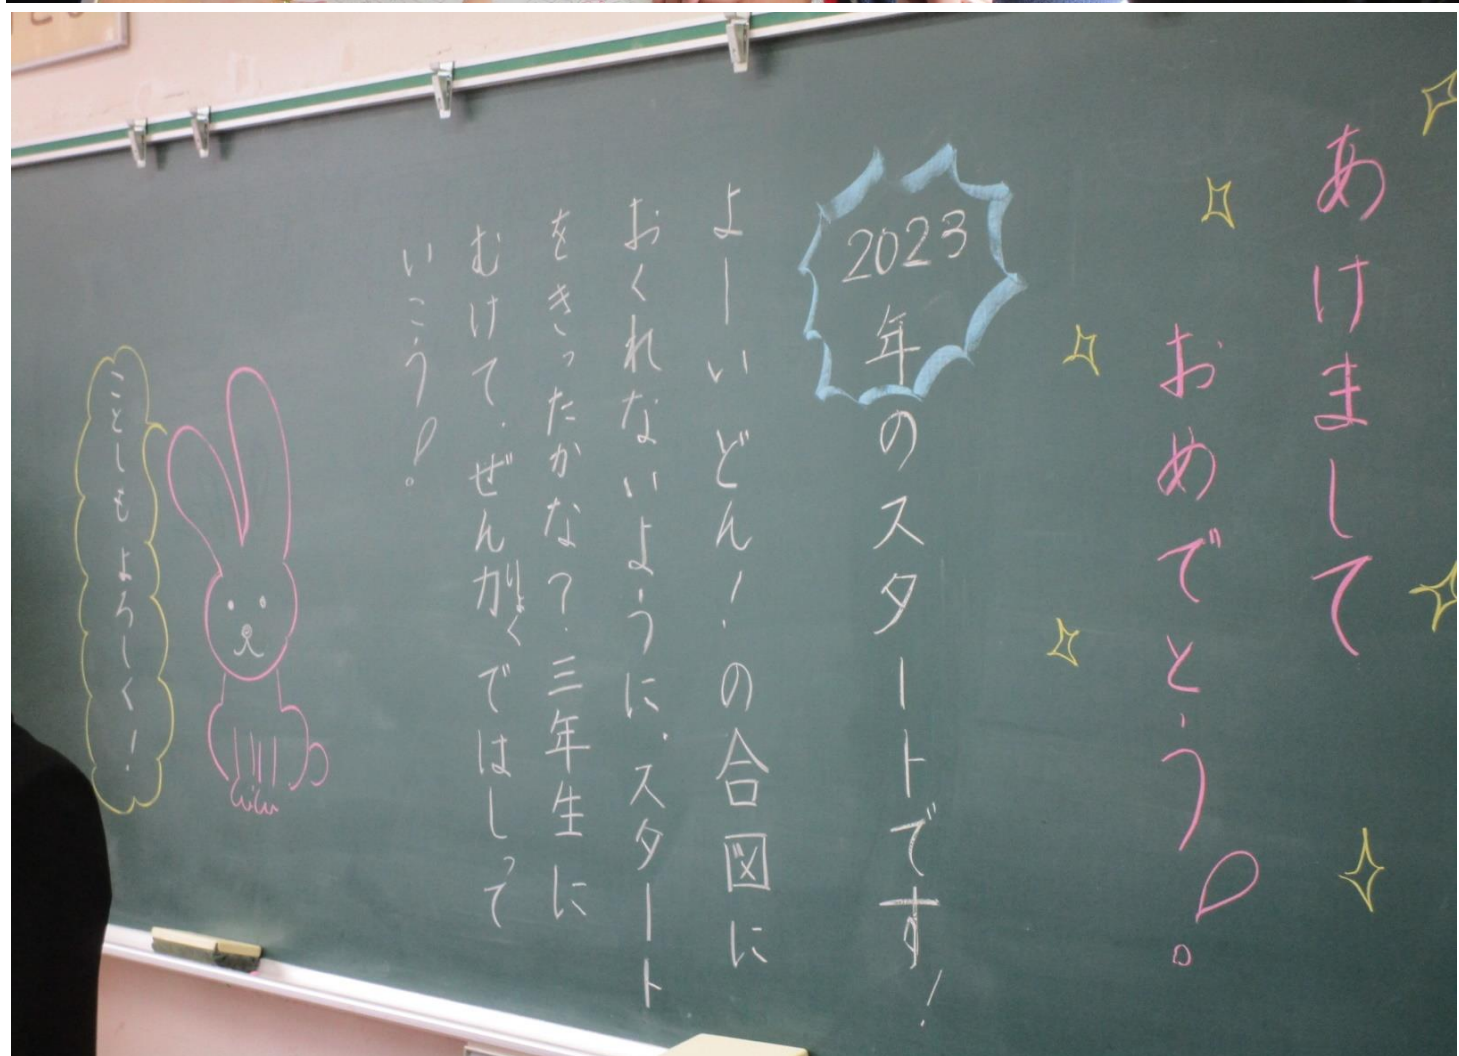 あけまして
おめでとう!
2023年のスタートです!
よーいどん!の合図に
おくれないように、スタート
をきったかな?三年生に
むけて、ぜん力りょくではしって
いこう!
ことしもよろしく!